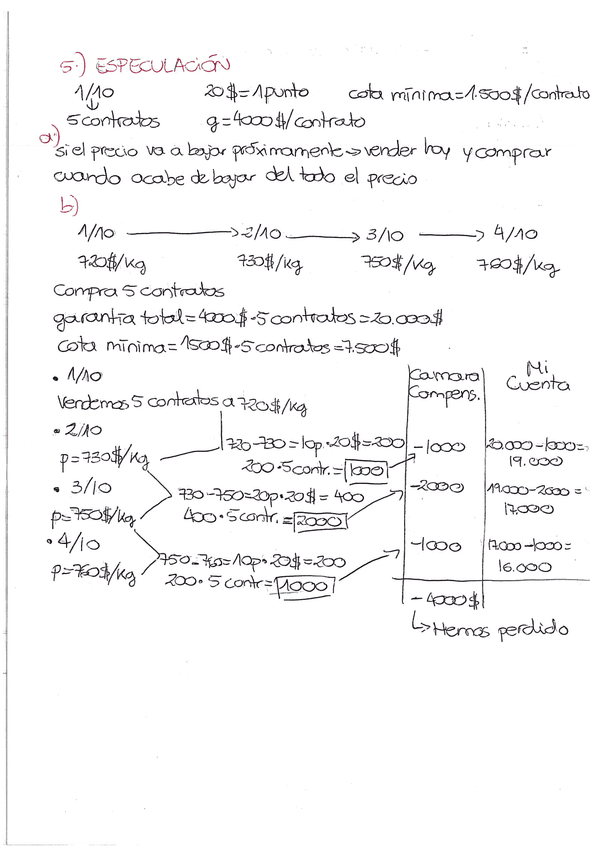 5.) ESPECULACIÓN
1/10 20$=1punto cota mínima=1.500$/contrato
5 contratos g=4000$/contrato
a)
si el precio va a bajar próximamente→vender hoy y comprar
cuando acabe de bajar del todo el precio
b)
1/10 → 2/10 → 3/10 → 4/10
720$/kg 730$/kg 750$/kg 760$/kg
Compra 5 contratos
garantía total=4000$·5 contratos=20.000$
Cota mínima=1500$·5 contratos=7.500$
• 1/10 Camara Compens. Mi Cuenta
Vendemos 5 contratos a 720$/kg
• 2/10 720-730=10p·20$=200 -1000 20.000-1000=
p=730$/kg 200·5contr.=1000 19.000
• 3/10 730-750=20p·20$=400 -2000 19.000-2000=
p=750$/kg 400·5contr.=2000 17.000
• 4/10 750-760=10p·20$=200 -1000 17.000-1000=
p=760$/kg 200·5contr=1000 16.000
-4000$
↳Hemos perdido